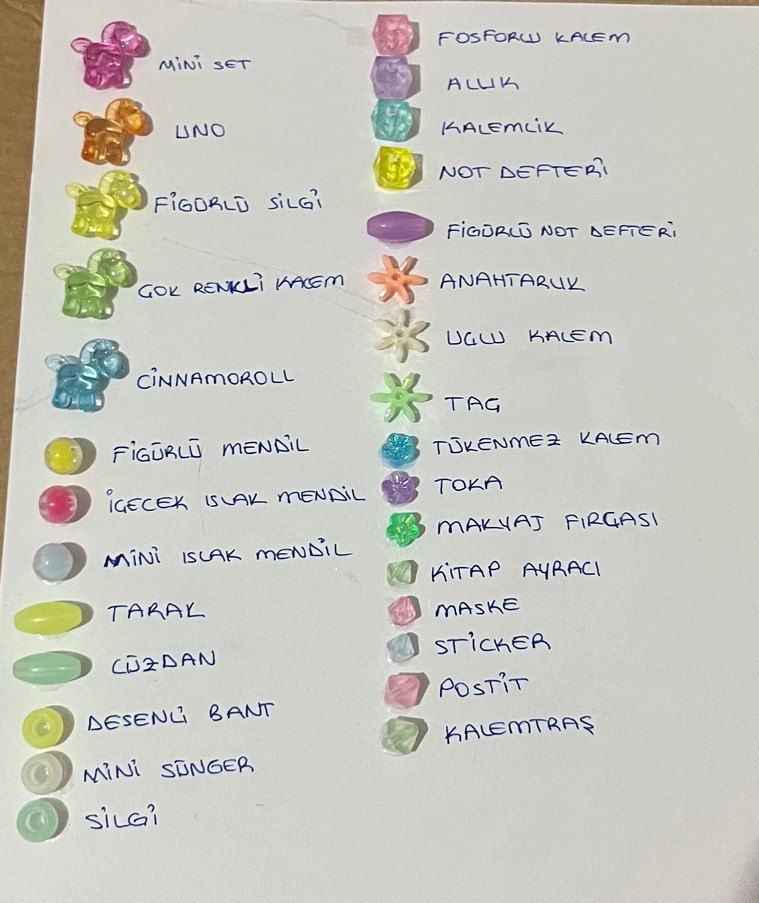 MİNİ SET
UNO
FİGÜRLÜ SİLGİ
ÇOK RENKLİ KALEM
CİNNAMOROLL
FİGÜRLÜ MENDİL
İÇECEK ISLAK MENDİL
MİNİ ISLAK MENDİL
TARAK
CÜZDAN
DESENLİ BANT
MİNİ SÜNGER
SİLGİ
FOSFORLU KALEM
ALLIK
KALEMLİK
NOT DEFTERİ
FİGÜRLÜ NOT DEFTERİ
ANAHTARLIK
UÇLU KALEM
TAG
TÜKENMEZ KALEM
TOKA
MAKYAJ FIRÇASI
KİTAP AYRACI
MASKE
STİCKER
POSTİT
KALEMTRAŞ